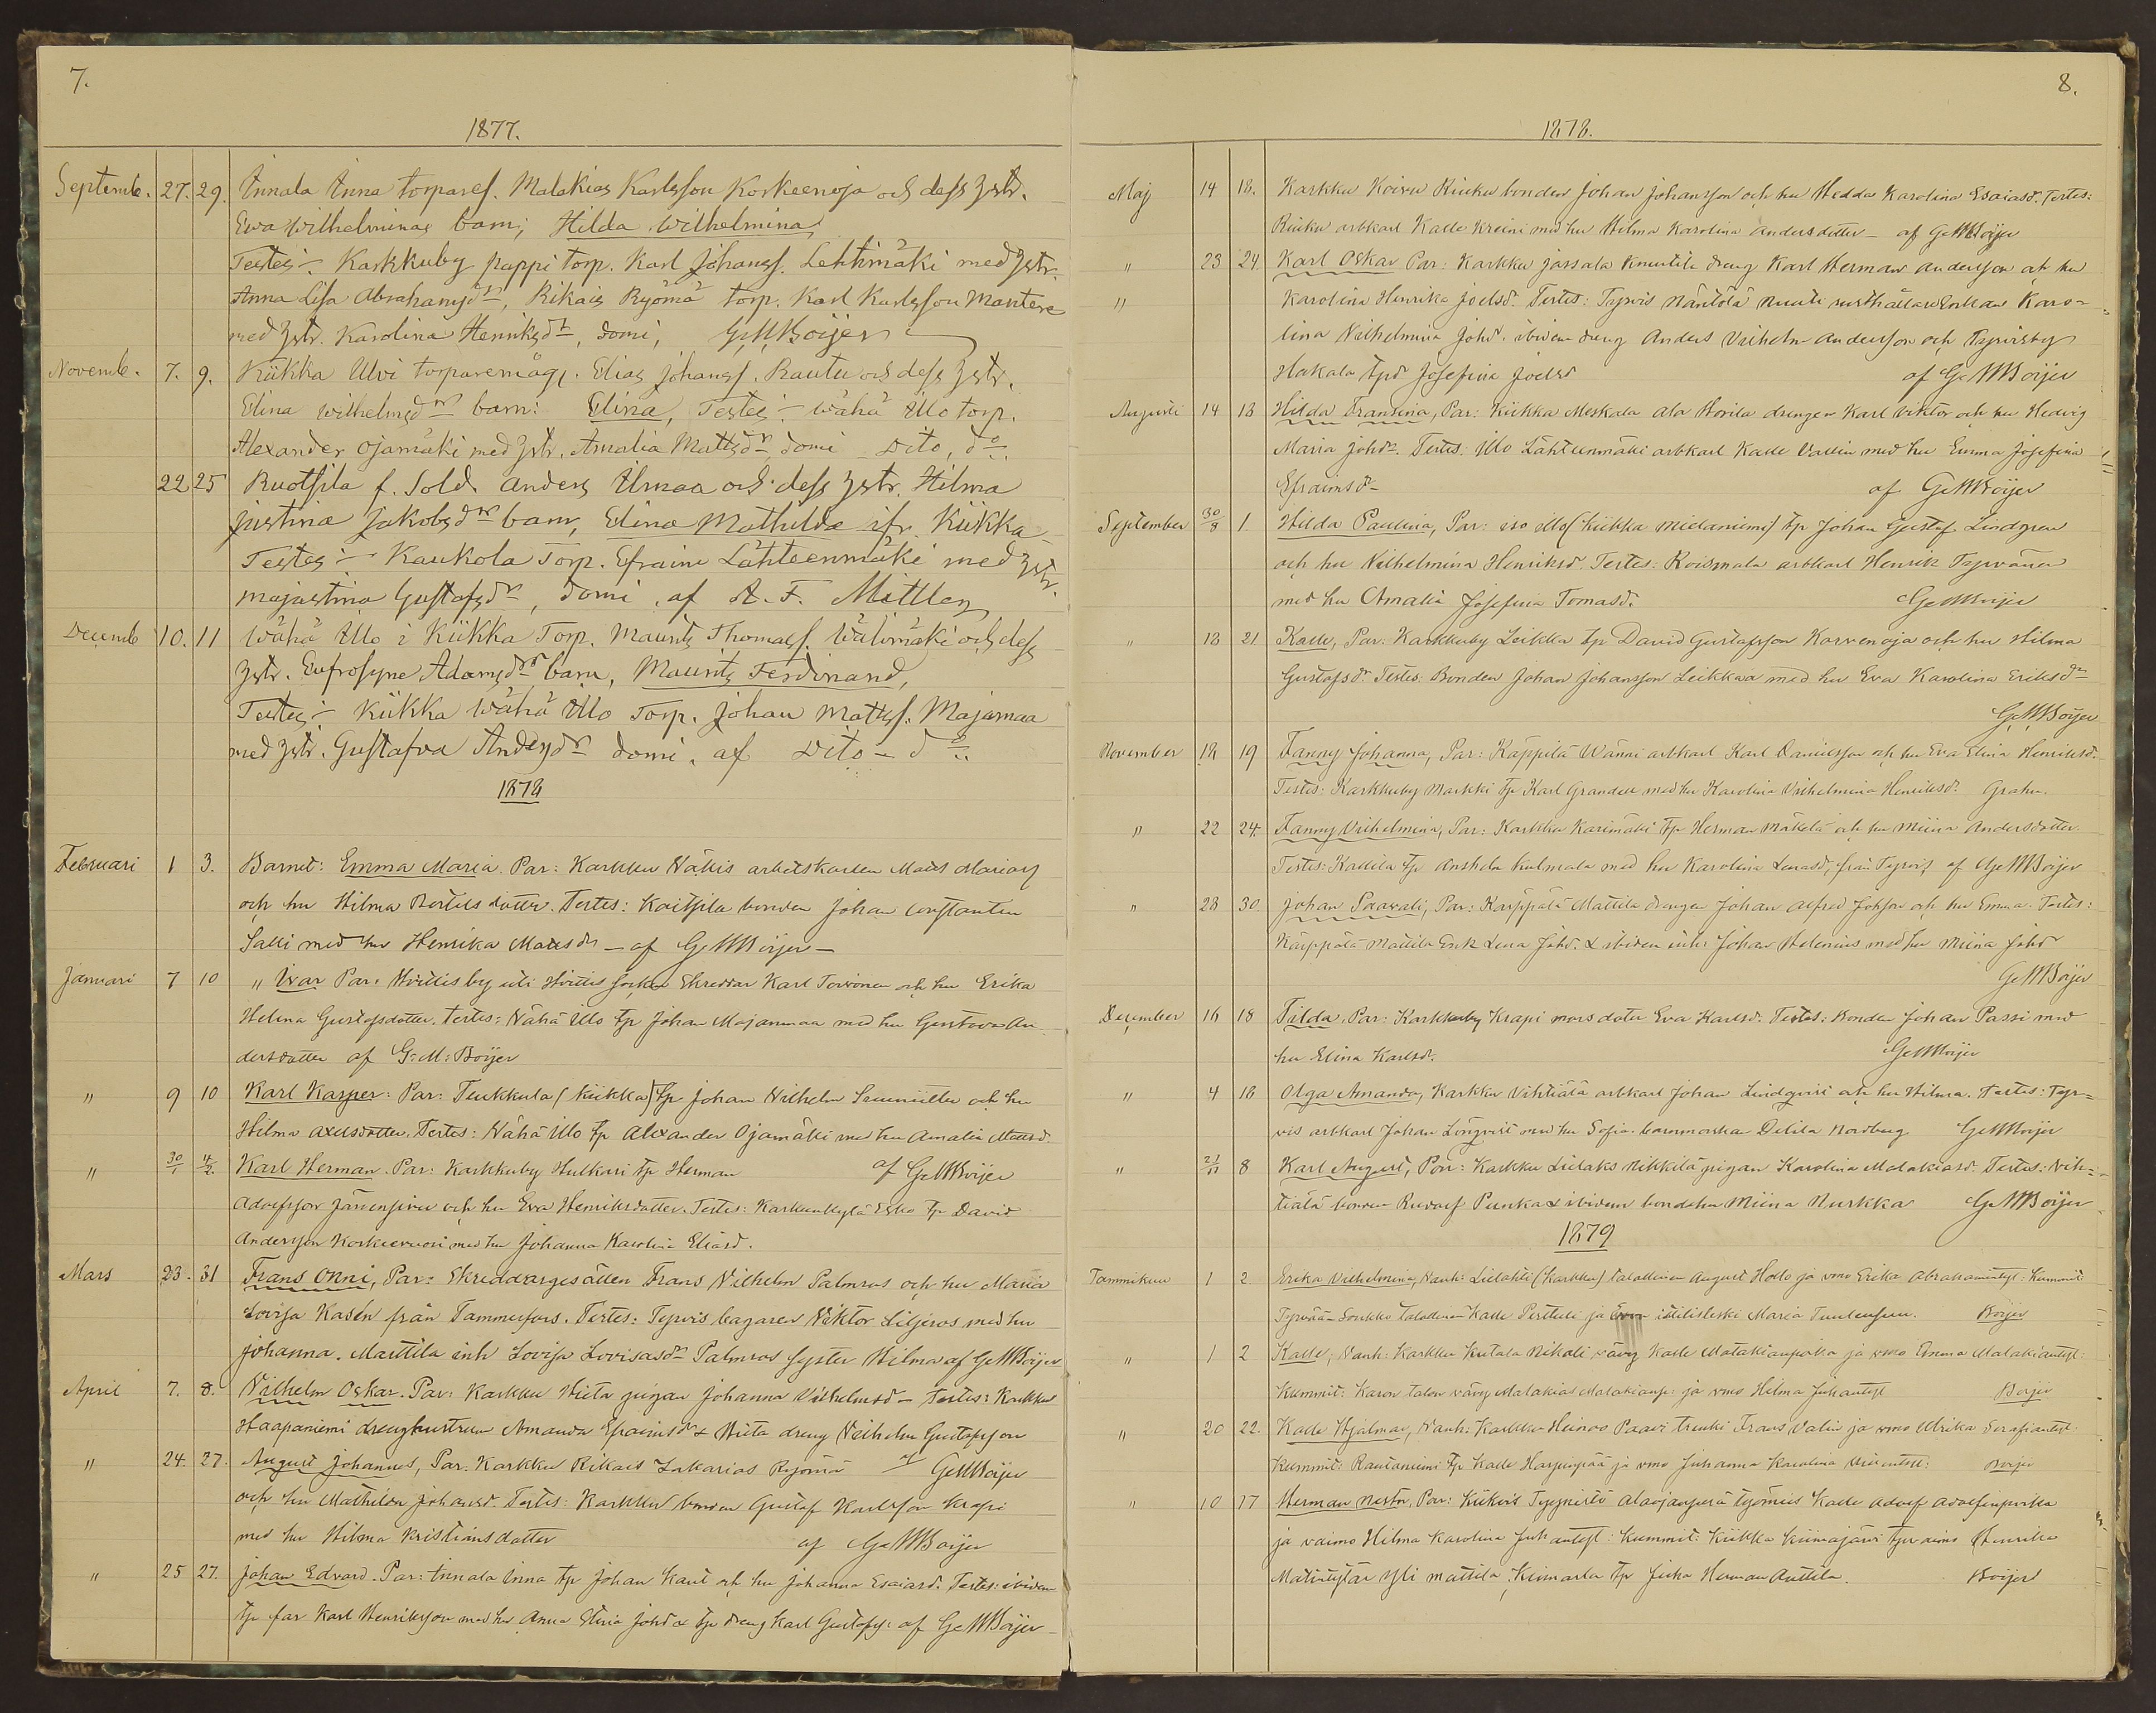 7.
1877.
Septemb. 27. 29. Innala Inna torparesf. Malakias Karlsson Koskenoja och dess hstr.
Ewa Wilhelminas barn; Hilda Wilhelmina,
Testes:- Karkkuby pappi torp. Karl Johanss. Lehtimäki med hstr.
Anna Lisa Abrahamsdr, Rikais Ryömä torp. Karl Karlsson Mantere
med hstr. Karolina Henriksdr, domi, G.M. Boijer
Novemb. 7. 9. Kiikka Ulvi torparemåg. Elias Johanss. Rautu och dess hstr.
Elina Wilhelmsdr barn: Elina, Testes:- Wähä Illo torp.
Alexander Ojamäki med hstr. Amalia Mattsdr, domi Dito, do.
22 25 Ruotsila f. Sold. Anders Urmaa och dess hstr. Hilma
Justina Jakobsdr barn, Elina Mathilda ifr. Kiikka
Testes:- Kaukola Torp. Efraim Lähteenmäki med hstr.
Majastina Gustafsdr, domi. af A. F. Mittler
Decemb 10. 11 Wähä Illo i Kiikka Torp. Maurits Thomass. Wälimäki och dess
hstr. Eufrosyne Adamsdr barn, Maurits Ferdinand,
Testes:- Kiikka Wähä Illo Torp. Johan Mattss. Majamaa
med hstr. Gustafva Andersdr domi. af Dito - do.
1878
Februari 1 3. Barnet: Emma Maria. Par: Karkku Nälkis arbetskarlen Matts
och hu Hilma Bertilsdotter. Testes: Kaitsila bonden Johan Constantin
Salli med hu Henrika Mattsdr - af G. M Boijer -
Januari 7 10 " Ivar Par: by uti socken Skreddar Karl Toivonen och hu Erika
Helena Gustafsdotter. Testes: Wähä Illo Tp Johan Majanmaa med hu Gustava An
dersdotter af G: M: Boijer
" 9 10 Karl Kasper: Par: Teukkula (Kiikka) Tp Johan Wilhelm och hu
Hilma Axelsdotter. Testes: Wähä Illo Tp Alexander Ojamäki med hu Amalia Mattsd.
" 30/1 4/2. Karl Herman. Par: Karkkuby Hulkari Tp Herman af G. M Boijer
Adolfsson och hu Eva Henriksdotter. Testes: Karkunkylä Esko Tp David
Andersson Korkeevuori med hu Johanna Karolina Eliasd.
Mars 23. 31 Frans Onni, Par: Skreddargesällen Frans Vilhelm Palmros och hu Maria
Lovisa Kasén från Tammerfors. Testes: Tyrvis bagaren Viktor Liljeros med hu
Johanna. Marttila inh Lovisa Lovisasdr Palmros syster Hilma af G M Boijer
April 7. 8. Vilhelm Oskar. Par: Karkku Hieta pigan Johanna Vilhelmsd - Testes: Karkku
Haapaniemi drenghustrun Amanda Efraimsdr & Hieta dreng Vilhelm Gustafsson
" 24. 27. August Johannes, Par. Karkku Rikais Zakarias Ryömä af G M Boijer
och hu Mathilda Johansd. Testes: Karkku bonden Gustaf Karlsson Krapi
med hu Hilma Kristiansdotter af G M Boijer
" 25 27. Johan Edvard. Par: Innala Inna Tp Johan Kant och hu Johanna Esaiasd. Testes: ibidem
Tp far Karl Henriksson med hu Anna Stina Johd & Tp dreng Karl Gustafss: af G M Boijer
8.
1878.
Maj 14 18. Karkku Koivu Kuku bonden Johan Johansson och hu Hedda Karolina Esaiasd. Testes:
arbkarl Kalle Kreini med hu Hilma Karolina Andersdotter - af G M Boijer
" 23 24. Karl Oskar Par: Karkku Jassala Knuutila dreng Karl Herman Andersson och hu
" Karolina Henrika Joelsd. Testes: Tyrvis Näntölä Nuuti rusthållare enkan Karo=
lina Vilhelmina Johd. ibidem dreng Anders Vilhelm Andersson och Tyrvisby
Hakala Tpd Josefina Joelsd af G M Boijer
Augusti 14 18 Hilda Fransina, Par: Kiikka Meskala Ala Horila drengen Karl Viktor och hu Hedvig
Maria Johdr. Testes: Illo Lähteenmäki arbkarl Kalle Vallin med hu Emma Josefina
Efraimsd- af G M Boijer
September 30/8 1. Hilda Paulina, Par: Iso Illo (Kiikka ) Tp Johan Gustaf Lindgren
och hu Vilhelmina Henriksd. Testes: Roismala arbkarl Henrik Tyrvänen
med hu Amalia Josefina Tomasd. G M Boijer
" 18 21. Kalle, Par: Karkkuby Leikka Tp David Gustafsson Korvenoja och hu Hilma
Gustafsd. Testes: Bonden Johan Johansson Leikkaa med hu Eva Karolina Eriksdr
G M Boijer
November 18 19 Fanny Johanna, Par: Käppilä Wänni arbkarl Karl Danielsson och hu Eva Elina Henriksd.
Testes: Karkkuby Markki Tp Karl Grandell med hu Karolina Vilhelmina Henriksd. Grahn.
" 22 24. Fanny Vilhelmina, Par: Karkku Karimäki Tp Herman Mäkelä och hu Miina Andersdotter.
Testes: Kallila Tp Anshelm Kulmala med hu Karolina Lenasd, från Tyrvis af G M Boijer
" 28 30. Johan Saavali, Par: Käppälä Mattila drengen Johan Alfred Johsson och hu Emma. Testes:
Kärppälä Mattila Enk Lena Johd. & ibidem inh: Johan Helenius med hu Miina Johdr
G M Boijer
December 16 18 Tilda, Par: Karkkuby Krapi mors dotter Eva Karlsd. Testes: Bonden Johan Passi med
hu Elina Karlsd. G M Boijer
" 4 18 Olga Amanda, Karkku Vihtiälä arbkarl Johan Lindqvist och hu Hilma. Testes: Tyr=
vis arbkarl Johan Löngvist med hu Sofia. barnmorska Delila Nordberg G M Boijer
" 21/11 8 Karl August, Par: Karkku Lielaks Nikkilä pigan Karolina Malakiasd. Testes: Vih=
tiälä bonden Rudolf Punka & ibidem bondehu Miina Nurkka G M Boijer
1879
Tammikuu 1 2 Erika Vilhelmina, Vanh: Lielahti (Karkku) talollinen August Hollo ja vmo Erika Abrahamintyt: Kummit
Tyrvään Soukko talollinen Kalle Perttuli ja itellisleski Maria Tuulensuu. Boijer
" 1 2 Kalle, Vanh: Karkku Kutala Nikali vävy Kalle Matakianpoika ja vmo Emma Malakiantyt:
Kummit: Karon talon vävy Malakias Malakianp: ja vmo Hilma Juhantyt Boijer
" 20 22. Kalle Hjalmar, Vanh: Karkku Heinoo Paavi trenki Frans Valin ja vmo Ulrika Serafiantyt:
Kummit: Rautaniemi Tp Kalle Harjunpää ja vmo Juhanna Karolina Boijer
" 10 17 Herman Nestor, Par: Kiikois työmies Kalle Adolf Adolfinpoika
ja vaimo Hilma Karolina Juhantyt: Kummit: Kiikka Kiimajärvi Tpr aimo Henrika
Matintytär Yli Mattila, Kiimarla Tp Juha Herman Anttila. Boijer